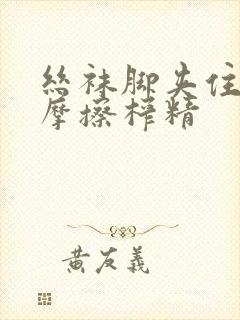 丝袜脚夹住
摩擦榨精
黄友义